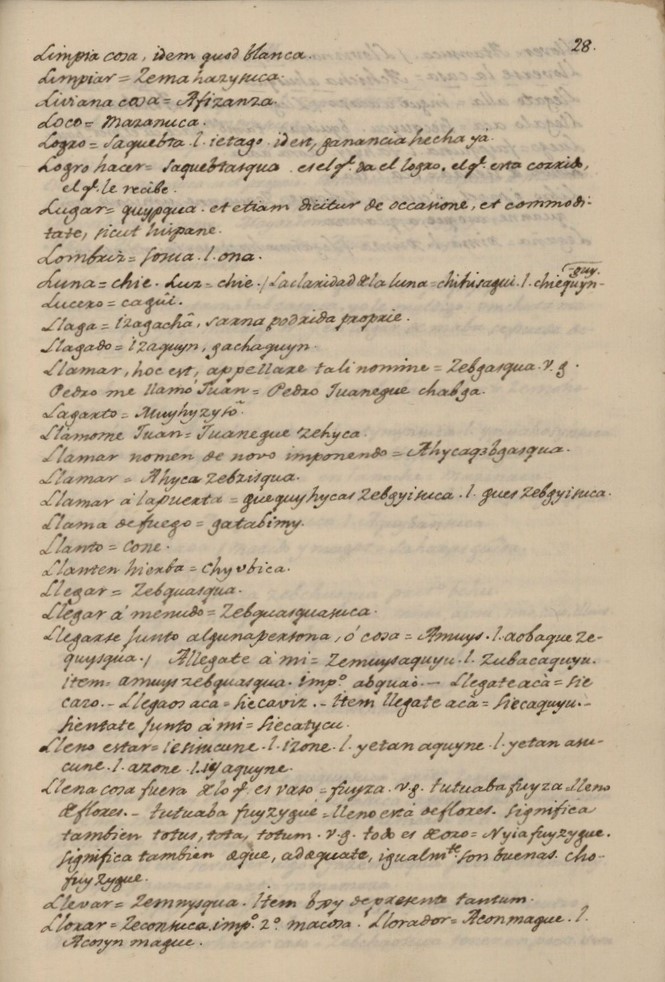 28.
Limpia cosa, idem quod blanca.
Limpiar = Zemahazysuca.
Liviana cosa = Afizanza
Loco = Mazanuca.
Logro = Saquebta. l. ietago. idest, ganancia hecha ya.
Logro hacer = Saquebtasqua. es el q.e da el logro, el q.e esta corrido,
el q.e le recibe.
Lugar = quypqua. et etiam dicitur de occasione, et commodi-
tate, sicut hispane.
Lombriz = sosua. l. ona.
Luna = chie. Luz = chie. / La claridad de la luna = chihisagui. l. chiequyn-
guy.
Lucero = cagui.
Llaga = izagachâ, sarna podrida proprie.
Llagado = izaquyn, gachaquyn.
Llamar, hoc est, appellare tali nomine = Zebgasqua. v.g.
Pedro me llamó Juan = Pedro Juanegue chabga.
Lagarto = Muyhyzyso
Llamome Juan = Juanegue zehyca.
Llamar nomen de novo imponendo = Ahycaqzbgasqua.
Llamar = Ahyca zebzisqua.
Llamar á la puerta = guequyhycas zebgyisuca. l. gues zebgyisuca.
Llama de fuego = gatabimy.
Llanto = Cone.
Llanten hierba = Chyubica.
Llegar = Zebquasqua.
Llegar á menudo = Zebquasquasuca.
Llegarse junto alguna persona, ó cosa = Amuys. l. aobaque ze-
quysqua. / Allegate á mi = Zemuysaquyu. l. Zubacaquyu.
item = amuys zebquasqua. imp.o abquao. - Llegate acà = sie
cazo. - Llegaos aca = siecaviz. - Item llegate acá = siecaquyu. -
sientate junto á mi = siecatycu.
Lleno estar = iesisucune. l. izone. l. yetan aquyne. l. yetan asu-
cune. l. azone. l. iy aquyne.
Llena cosa fuera de lo q.e es vaso = fuyza. v.g. tutuaba fuyza lleno
de flores. - tutuaba fuyzygue = lleno está de flores. significa
tambien totus, tota, totum. v.g. todo es de oro = Nyia fuyzygue.
significa tambien æque, adæquate, igualm.te son buenas. cho-
fuyzygue.
Llevar = Zemnysqua. Item bxy de presente tantum.
Llorar = Zeconsuca. imp.o 2.o macosa. Llorador = Aconmague. l.
Acosyn mague.